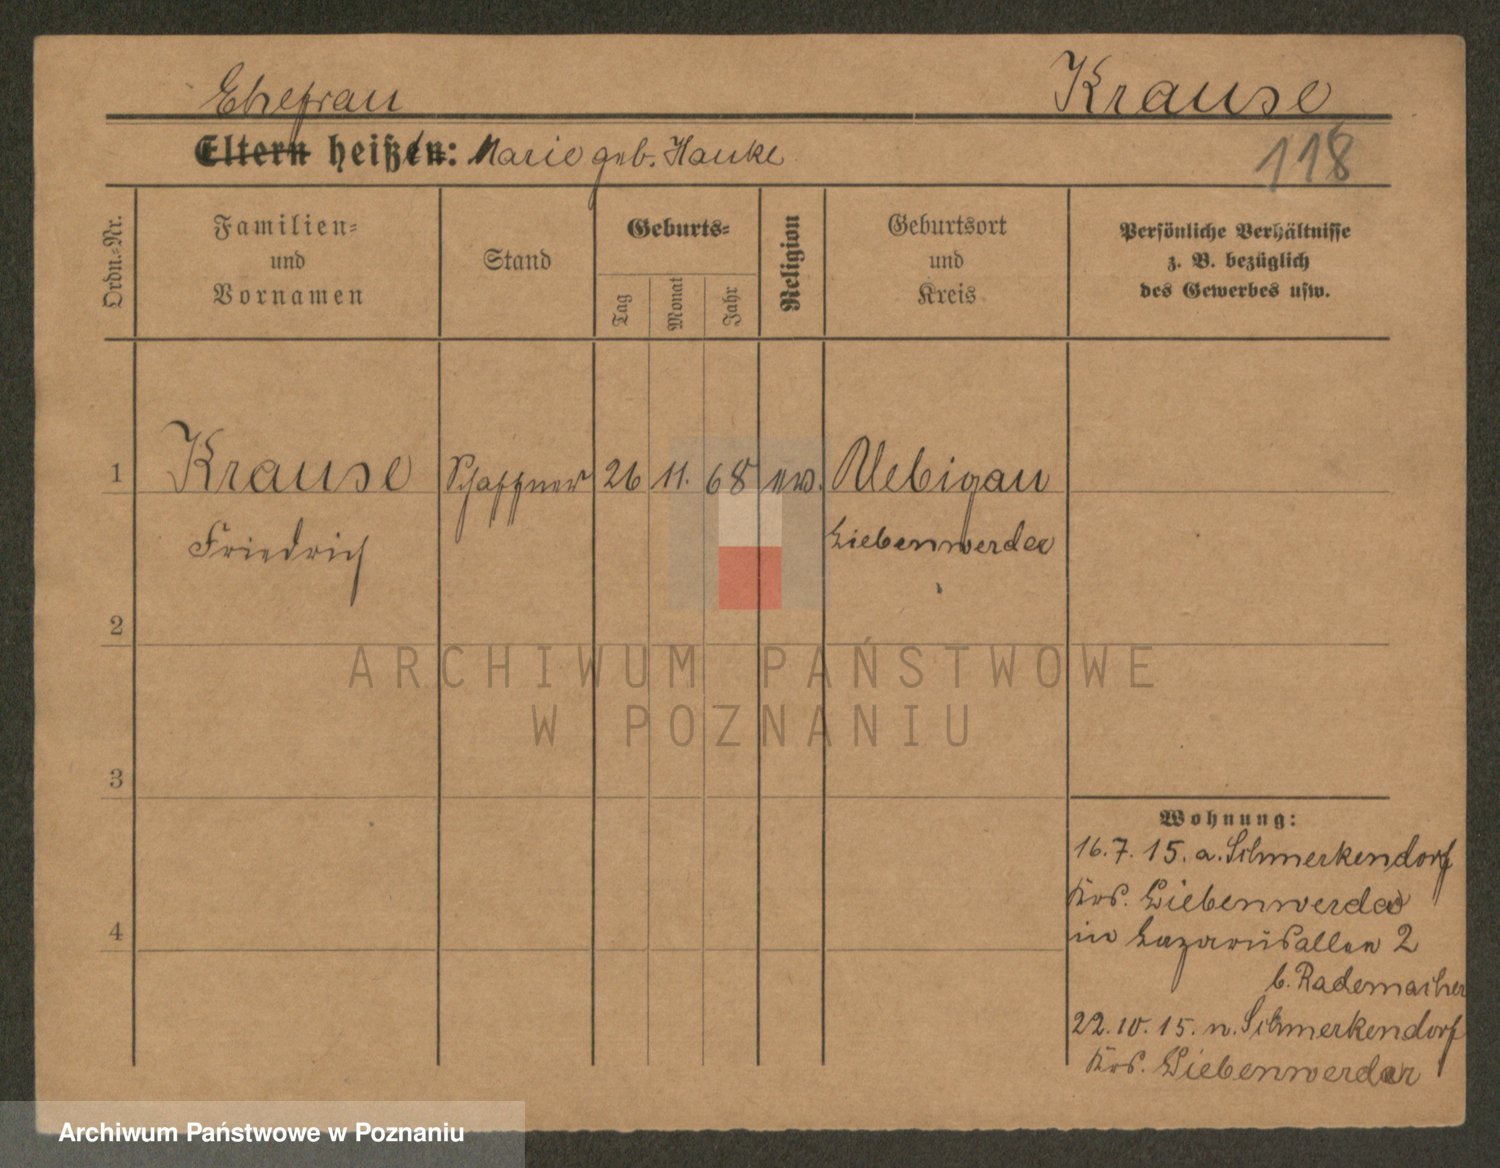 Ehefrau
Krause
Eltern heißen: Marie geb. Hanke
118
Ordn.=Nr.
Familien=
und
Vornamen
Stand
Geburts=
Tag
Monat
Jahr
Religion
Geburtsort
und
Kreis
Persönliche Verhältnisse
z. B. bezüglich
des Gewerbes usw.
1
Krause
Schaffner
26
11.
68
ev.
Uebigau
Friedrich
Liebenwerder
2
ARCHIWUM PAŃSTWOWE
W POZNANIU
3
Wohnung:
16.7.15. a. Schmerkendorf
Krs. Liebenwerda
in Lazarusallee 2
b. Rademacher
22.10.15. n. Schmerkendorf
Krs. Liebenwerder
4
Archiwum Państwowe w Poznaniu